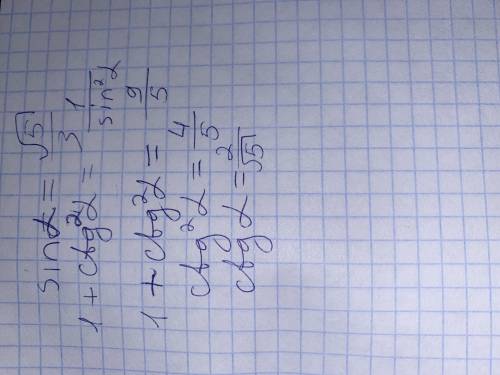 sin α = √5/3
1 + ctg²α = 1/sin²α
1 + ctg²α = 9/5
ctg²α = 4/5
ctg α = 2/√5